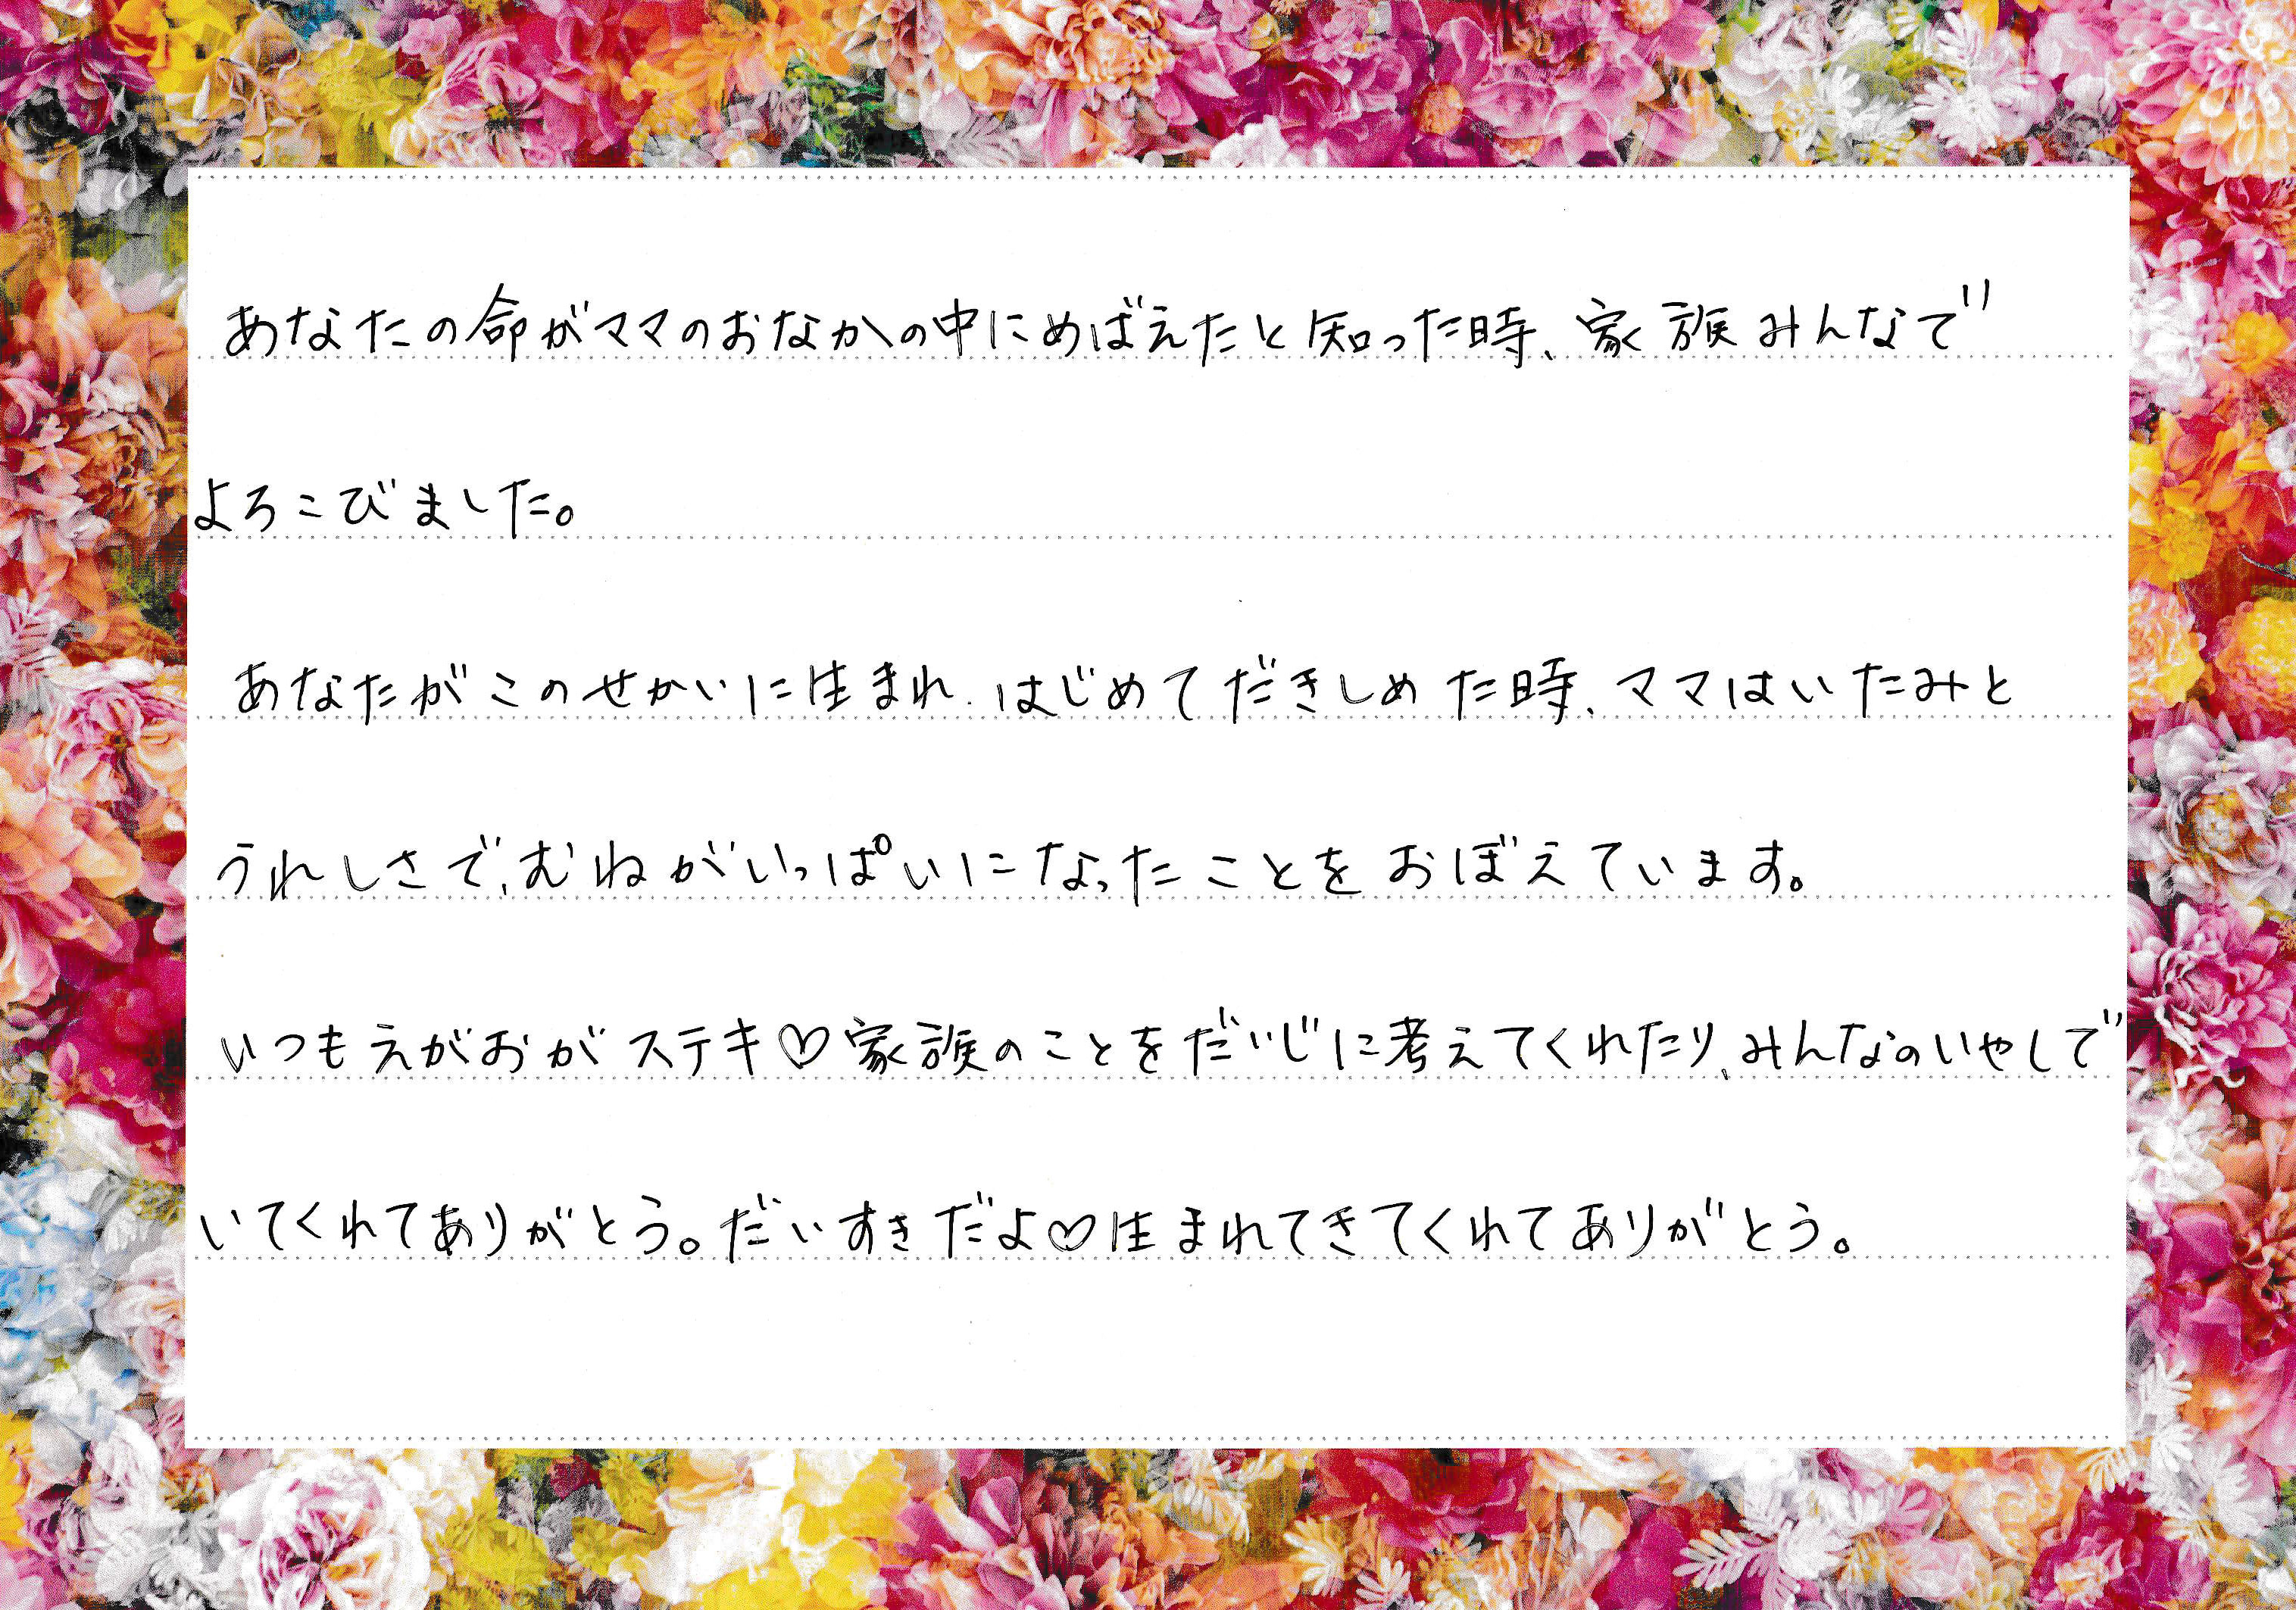 あなたの命がママのおなかの中にめばえたと知った時、家族みんなで
よろこびました。
あなたがこのせかいに生まれ、はじめてだきしめた時、ママはいたみと
うれしさで、むねがいっぱいになったことをおぼえています。
いつもえがおがステキ♡家族のことをだいじに考えてくれたり、みんなのいやしで
いてくれてありがとう。だいすきだよ♡生まれてきてくれてありがとう。